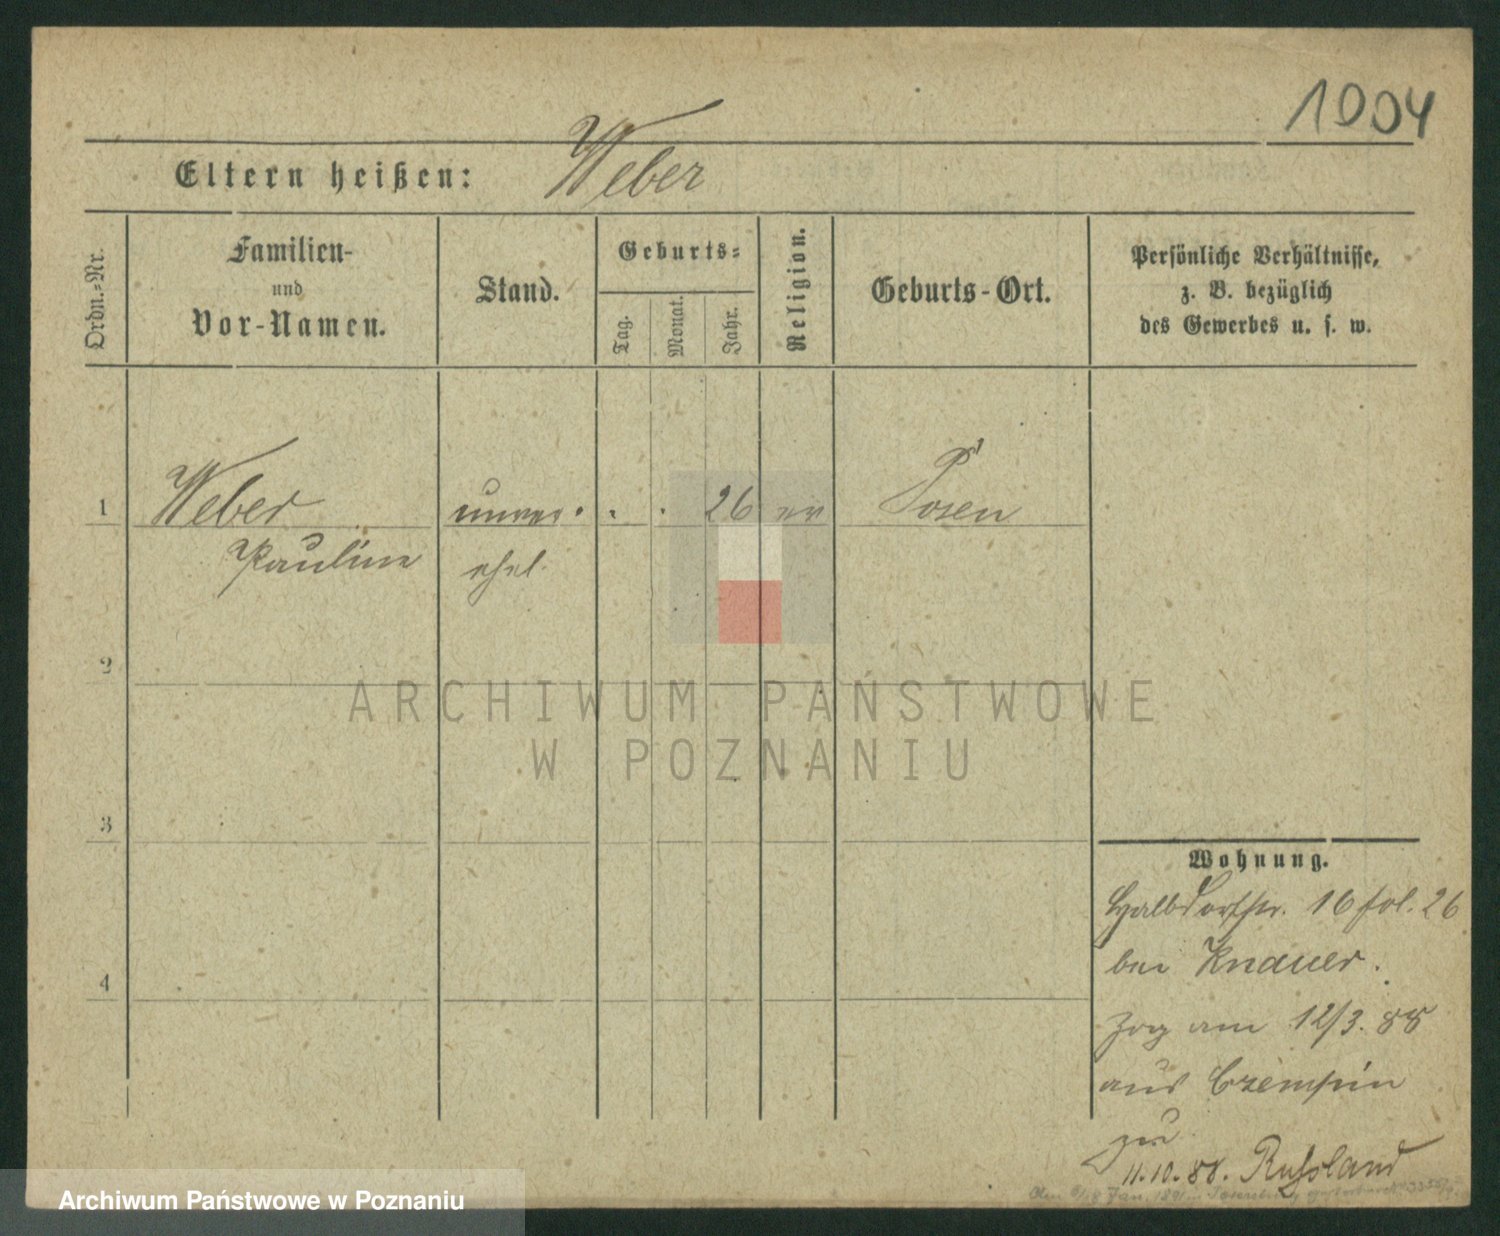 1004
Eltern heißen: Weber
Ordn.-Nr.
Familien-
und
Vor-Namen.
Stand.
Geburts-
Tag.
Monat.
Jahr.
Religion.
Geburts-Ort.
Persönliche Verhältnisse,
z. B. bezüglich
des Gewerbes u. s. w.
1 Weber unver. . . 26 ev Posen
Pauline ehel.
2
3
4
Wohnung.
Halbdorfstr. 16 fol. 26
bei Knauer.
Zog am 12/3. 88
aus Czempin
zu
11.10.88. Russland
ARCHIWUM PAŃSTWOWE
W POZNANIU
Archiwum Państwowe w Poznaniu